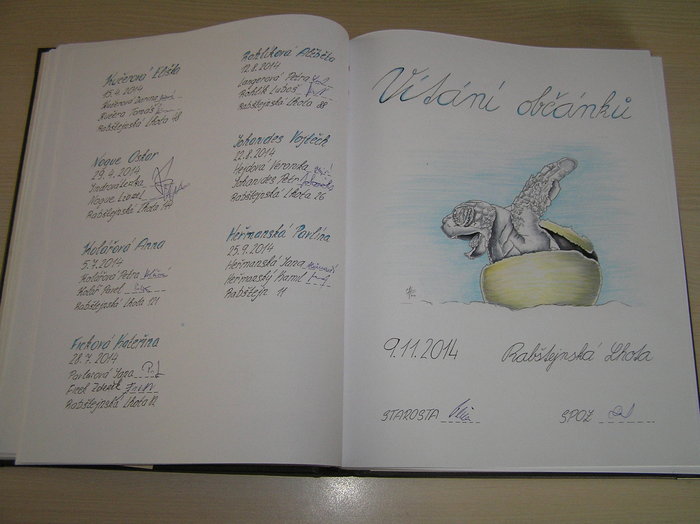 Kučerová Eliška
15.4.2014
Kučerová Darina
Kučera Tomáš
Rabštejnská Lhota 48
Nogue Oskar
29.4.2014
Jindrová Lenka
Nogue
Rabštejnská Lhota
Kolářová Anna
5.7.2014
Kolářová Petra
Kolář Pavel
Rabštejnská Lhota 121
Ficková Kateřina
28.7.2014
Pavlasová Jana
Ficek Zdeněk
Rabštejnská Lhota
Rohlíková Alžběta
12.8.2014
Langerová Petra
Rohlík Luboš
Rabštejnská Lhota 88
Johanides Vojtěch
22.8.2014
Hejdová Veronika
Johanides Petr
Rabštejnská Lhota 26
Heřmanská Pavlína
25.9.2014
Heřmanská Jana
Heřmanský Kamil
Rabštejn 11
Vítání občánků
9.11.2014 Rabštejnská Lhota
STAROSTA SPOZ